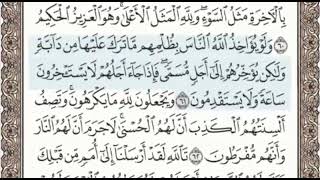 بِٱلْأَخِرَةِ مَثَلُ ٱلسَّوْءِ ۖ وَلِلَّهِ ٱلْمَثَلُ ٱلْأَعْلَىٰ ۚ وَهُوَ ٱلْعَزِيزُ ٱلْحَكِيمُ
٦٠ وَلَوْ يُؤَاخِذُ ٱللَّهُ ٱلنَّاسَ بِظُلْمِهِم مَّا تَرَكَ عَلَيْهَا مِن دَآبَّةٍ
وَلَٰكِن يُؤَخِّرُهُمْ إِلَىٰٓ أَجَلٍ مُّسَمًّى ۖ فَإِذَا جَآءَ أَجَلُهُمْ لَا يَسْتَـْٔخِرُونَ
سَاعَةً وَلَا يَسْتَقْدِمُونَ ٦١ وَيَجْعَلُونَ لِلَّهِ مَا يَكْرَهُونَ ۚ وَتَصِفُ
أَلْسِنَتُهُمُ ٱلْكَذِبَ أَنَّ لَهُمُ ٱلْحُسْنَىٰ ۖ لَا جَرَمَ أَنَّ لَهُمُ ٱلنَّارَ
وَأَنَّهُم مُّفْرَطُونَ ٦٢ تَٱللَّهِ لَقَدْ أَرْسَلْنَآ إِلَىٰٓ أُمَمٍ مِّن قَبْلِكَ